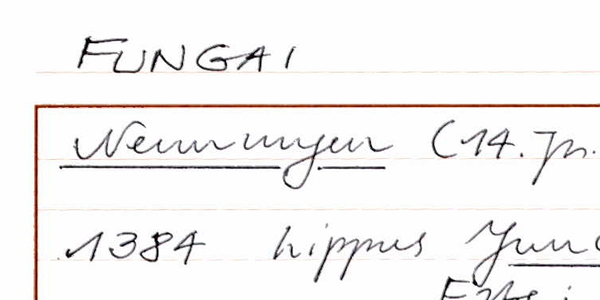 FUNGAI
Nennungen (14. Jh.
1384 Lippus Jun